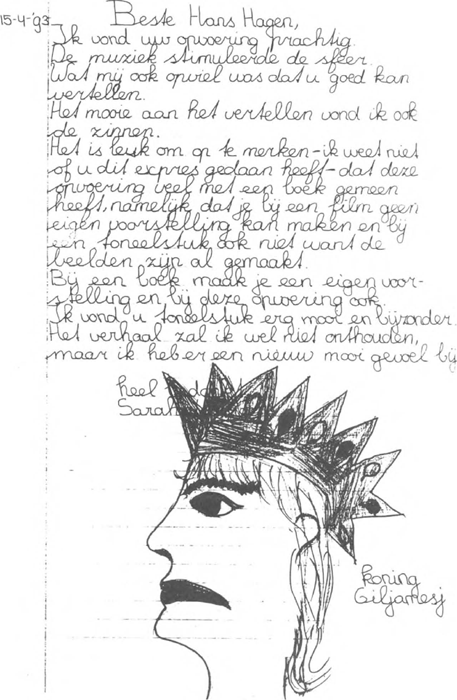 15-4-'93
Beste Hans Hagen,
Ik vond uw opvoering prachtig.
De muziek stimuleerde de sfeer.
Wat mij ook opviel was dat u goed kan
vertellen.
Het mooie aan het vertellen vond ik ook
de zinnen.
Het is leuk om op te merken - ik weet niet
of u dit expres gedaan heeft - dat deze
opvoering veel met een boek gemeen
heeft, namelijk dat je bij een film geen
eigen voorstelling kan maken en bij
een toneelstuk ook niet want de
beelden zijn al gemaakt.
Bij een boek maak je een eigen voor-
stelling en bij deze opvoering ook.
Ik vond u toneelstuk erg mooi en bijzonder.
Het verhaal zal ik wel niet onthouden,
maar ik heb er een nieuw mooi gevoel bij
heel
Sarah
koning
Giljamesj